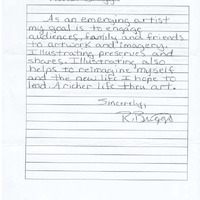 As an emerging artist
my goal is to engage
audiences, family and friends
to artwork and imagery.
Illustrating preserves and
shares. Illustrating also
helps to reimagine myself
and the new life I hope to
lead. A richer life thru art.
Sincerely,
R. Biggs